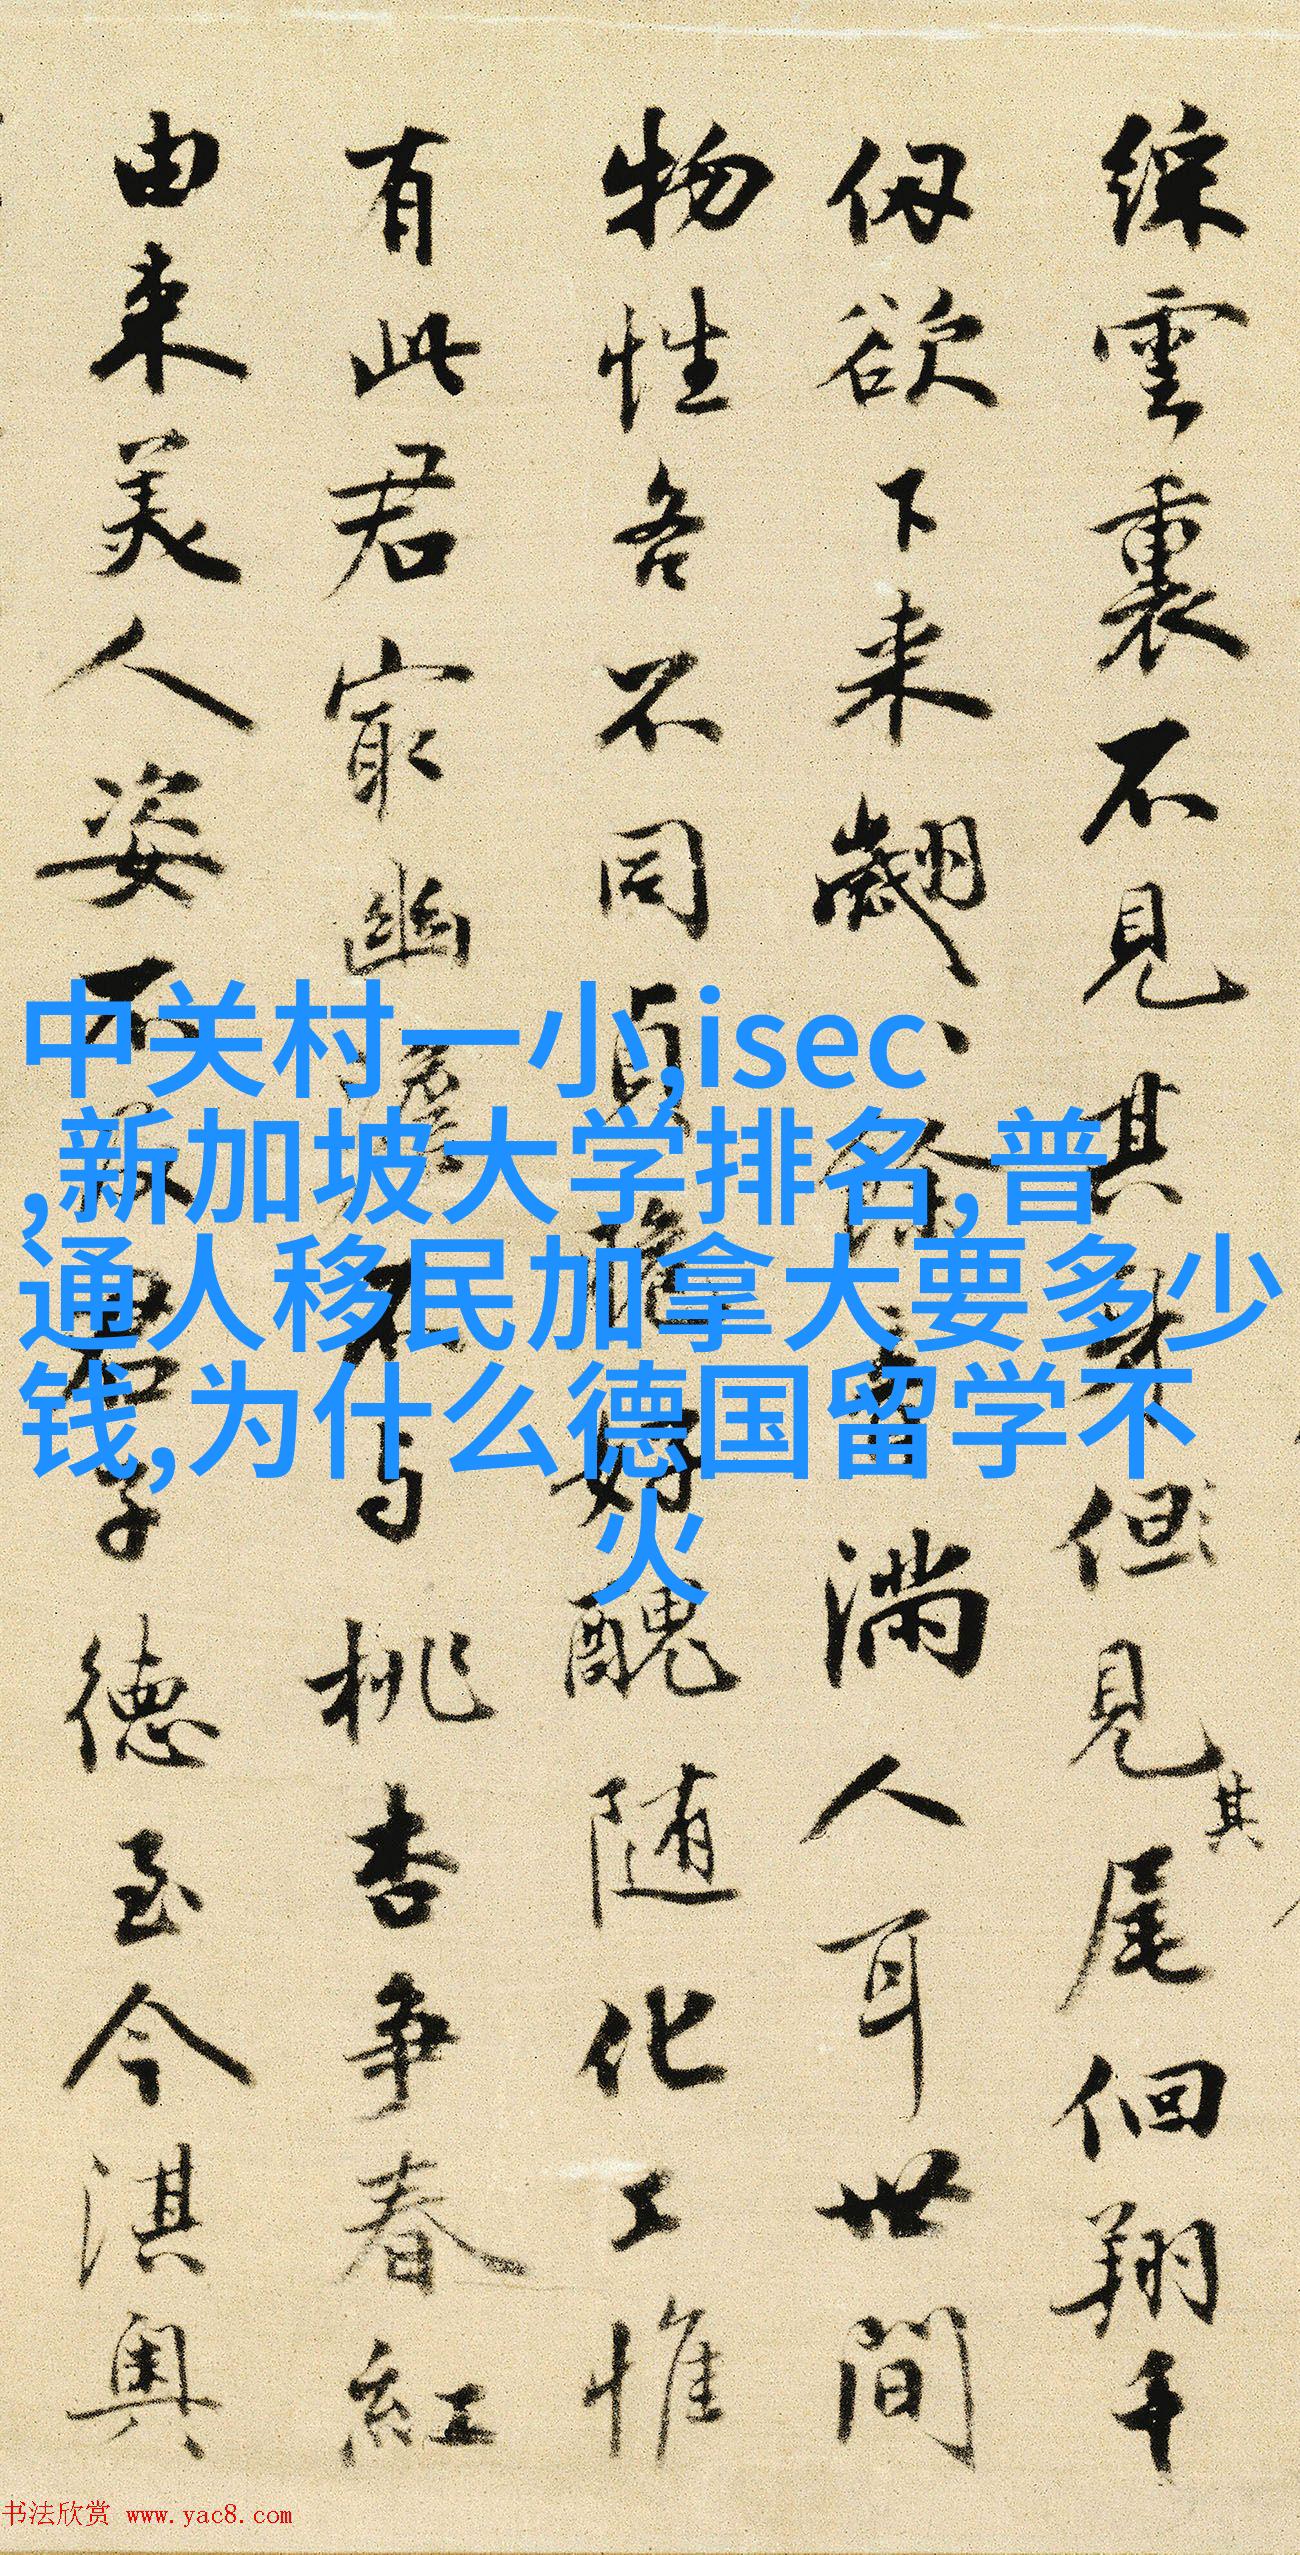 綵雲裏不見其但見其尾徊翔千
仭欲下来翽、餘音滿人耳世間
物性各不同貞好醜随化工惟
有此君冣幽澹不与桃杏争春紅
由来美人姿不君子德至今淇奥
中关村一小,isec
,新加坡大学排名,普
通人移民加拿大要多少
钱,为什么德国留学不
火
书法欣赏 www.yac8.com